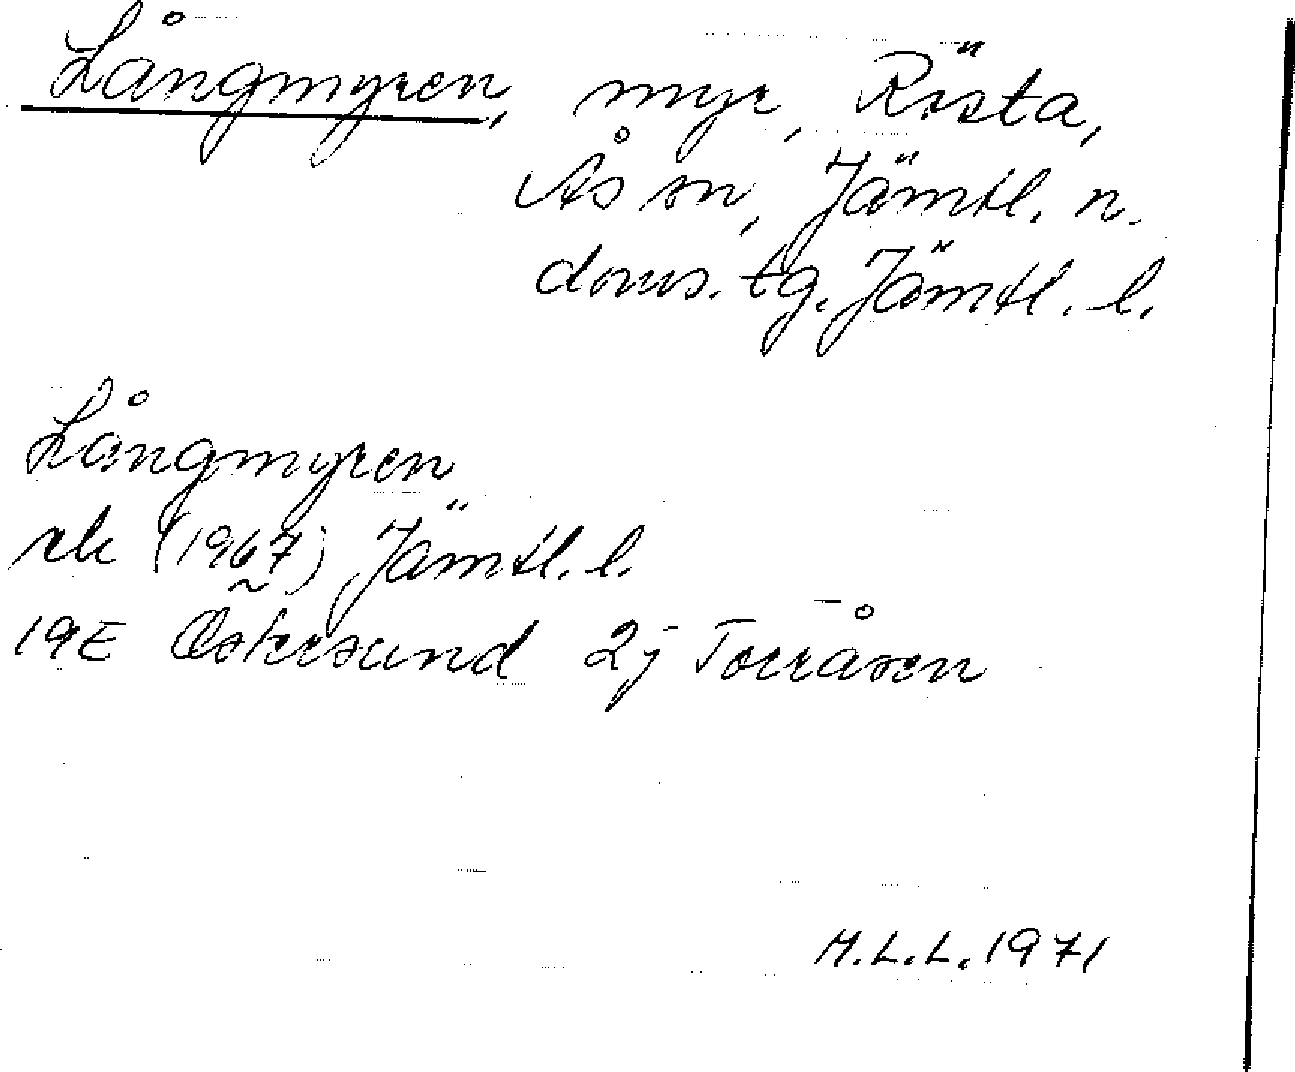 Långmyren, myr, Rösta,
Ås sn, Jämtl. n.
doms. tg. Jämtl. l.
Långmyren
rek (1967) Jämtl. l.
19E Östersund 2j Torråsen
M.L.L. 1971